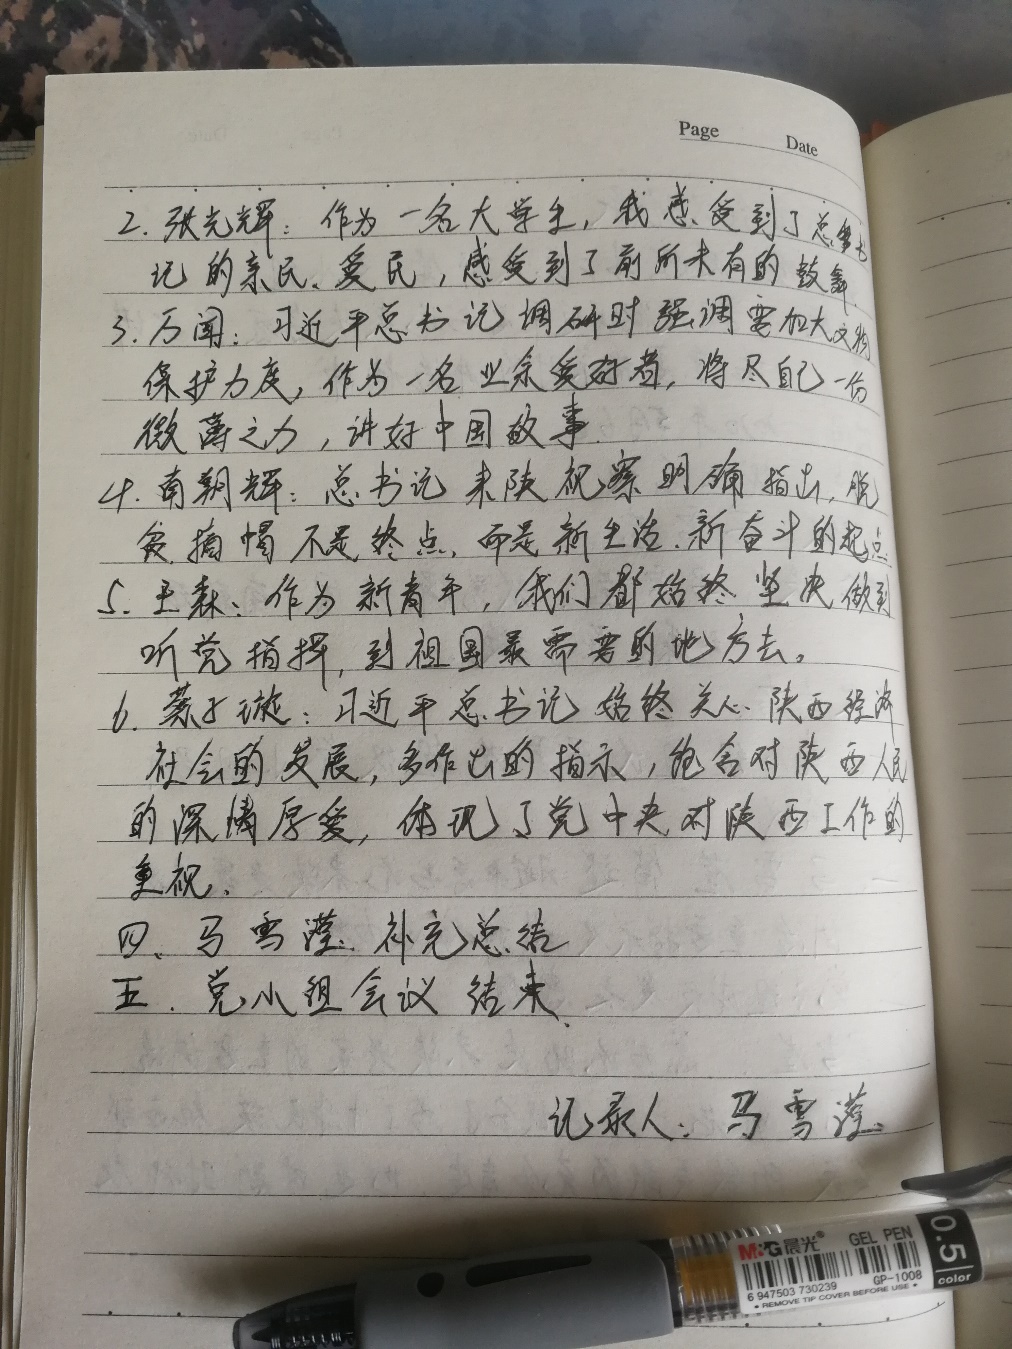 Page Date
2. 张光辉：作为一名大学生，我感受到了总书
记的亲民、爱民，感受到了前所未有的鼓舞.
3. 万闻：习近平总书记调研时强调要加大文物
保护力度，作为一名业余爱好者，将尽自己一份
微薄之力，讲好中国故事.
4. 南朝辉：总书记来陕视察明确指出，脱
贫摘帽不是终点，而是新生活、新奋斗的起点
5. 王森：作为新青年，我们都始终坚决做到
听党指挥，到祖国最需要的地方去。
6. 子璇：习近平总书记始终关心陕西经济
社会的发展，多作出的指示，饱含对陕西人民
的深情厚爱，体现了党中央对陕西工作的
重视.
四、马雪滢 补充总结
五. 党小组会议结束.
记录人：马雪滢
M&G 晨光 GEL PEN 0.5
6 947503 730239 GP-1008 color
• REMOVE TIP COVER BEFORE USE •